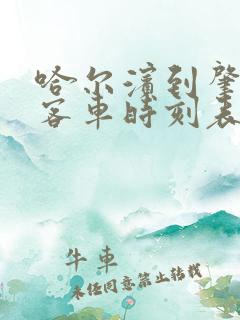 哈尔滨到肇
客车时刻表
牛车
未经同意禁止转载